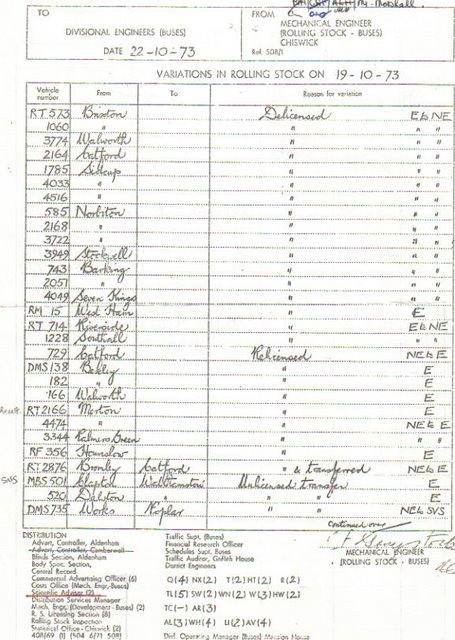 TO
DIVISIONAL ENGINEERS (BUSES)
DATE 22-10-73
FROM
MECHANICAL ENGINEER
(ROLLING STOCK - BUSES)
CHISWICK
Ref. 508/1
VARIATIONS IN ROLLING STOCK ON 19-10-73
Vehicle number From To Reason for variation
RT 573 Brixton Delicensed E & NE
1060 " " " "
3774 Walworth " " "
2164 Catford " " "
1785 Sidcup " " "
4033 " " " "
4516 " " " "
585 Norbiton " " "
2168 " " " "
3722 " " " "
3949 Stockwell " " "
743 Barking " " "
2051 " " " "
4049 Seven Kings " " "
RM 15 West Ham " E
RT 714 Riverside " E & NE
1228 Southall " " "
729 Catford Relicensed NE & E
DMS 138 Bexley " E
182 " " E
166 Walworth " E
RT 2166 Merton " E
4474 " " NE & E
3344 Palmers Green " " "
RF 356 Hounslow " E
RT 2876 Bromley Catford " & transferred NE & E
SNS MBS 501 Clapton Walthamstow Unlicensed transfer E
520 Dalston " " " E
DMS 735 Works Poplar NE & SVS
Continued over
DISTRIBUTION
Advert, Controller, Aldenham
Advert, Controller, Camberwell
Blinds Section, Aldenham
Body Spat. Section,
Central Record
Commercial Advertising Officer (6)
Costs Office (Mech. Engr. Buses)
Scientific Adviser (2)
Distribution Services Manager
Mech. Engr. (Development - Buses) (2)
R. S. Licensing Section (8)
Rolling Stock Inspection
Statistical Office - Chiswick (2)
Traffic Supt. (Buses)
Financial Research Officer
Schedules Supt. Buses
Traffic Auditor, Griffith House
District Engineers
Q(4) NX(2) T(2) HT(2) R(2)
TL(5) SW(2) WN(2) W(3) HW(2)
TC(-) AR(3)
AL(3) WH(4) U(2) AV(4)
Divl. Operating Manager (Buses) Mansion House
MECHANICAL ENGINEER
(ROLLING STOCK - BUSES)